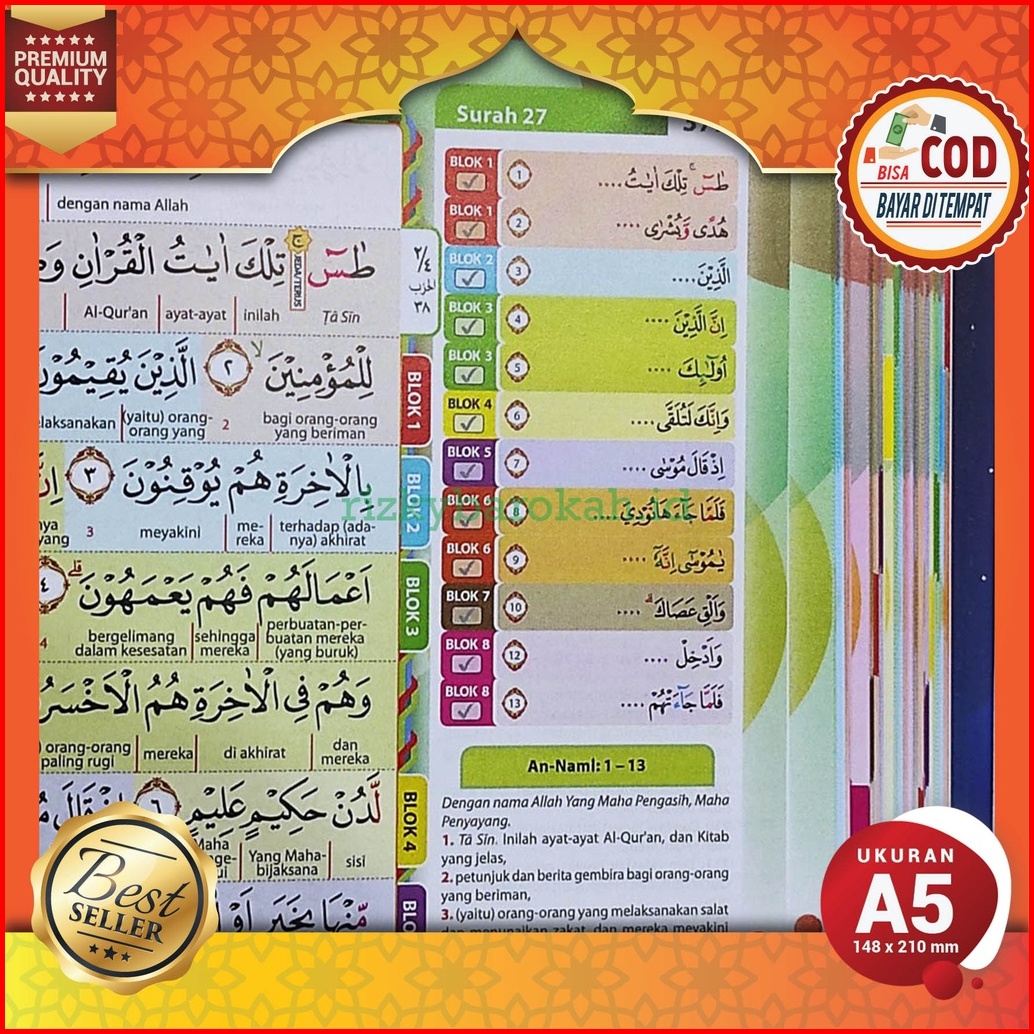 PREMIUM
QUALITY
BISA
COD
BAYAR DI TEMPAT
dengan nama Allah
طٰسۤ ۚ تِلْكَ اٰيٰتُ الْقُرْاٰنِ
Al-Qur'an | ayat-ayat | inilah | Ṭâ Sîn
JEDA/TERUS
٢/٤
الحزب
٣٨
لِلْمُؤْمِنِيْنَ ٢ الَّذِيْنَ يُقِيْمُوْنَ
(yaitu) orang-orang yang
2
bagi orang-orang
yang beriman
بِالْاٰخِرَةِ هُمْ يُوْقِنُوْنَ ٣
3
meyakini
me-
reka
terhadap (ada-
nya) akhirat
اَعْمَالَهُمْ فَهُمْ يَعْمَهُوْنَ ٤
4
bergelimang
dalam kesesatan
sehingga
mereka
perbuatan-per-
buatan mereka
(yang buruk)
وَهُمْ فِى الْاٰخِرَةِ هُمُ
orang-orang
paling rugi
mereka
di akhirat
dan
mereka
لَّدُنْ حَكِيْمٍ عَلِيْمٍ ٦
Yang Maha-
bijaksana
sisi
BLOK 1
BLOK 2
BLOK 3
BLOK 4
Surah 27
BLOK 1 1 طٰسۤ ۚ تِلْكَ اٰيٰتُ....
BLOK 1 2 هُدًى وَّبُشْرٰى ....
BLOK 2 3 الَّذِيْنَ....
BLOK 3 4 اِنَّ الَّذِيْنَ ....
BLOK 3 5 اُولٰۤىِٕكَ ....
BLOK 4 6 وَاِنَّكَ لَتُلَقَّى....
BLOK 5 7 اِذْ قَالَ مُوْسٰى ....
BLOK 6 8 فَلَمَّا جَاۤءَهَا نُوْدِيَ....
BLOK 6 9 يٰمُوْسٰٓى اِنَّهٗٓ ....
BLOK 7 10 وَاَلْقِ عَصَاكَ ۗ ....
BLOK 8 12 وَاَدْخِلْ ....
BLOK 8 13 فَلَمَّا جَاۤءَتْهُمْ ....
An-Naml: 1 – 13
Dengan nama Allah Yang Maha Pengasih, Maha
Penyayang.
1. Ṭâ Sîn. Inilah ayat-ayat Al-Qur'an, dan Kitab
yang jelas,
2. petunjuk dan berita gembira bagi orang-orang
yang beriman,
3. (yaitu) orang-orang yang melaksanakan salat
dan menunaikan zakat, dan mereka meyakini
Best
SELLER
UKURAN
A5
148 x 210 mm